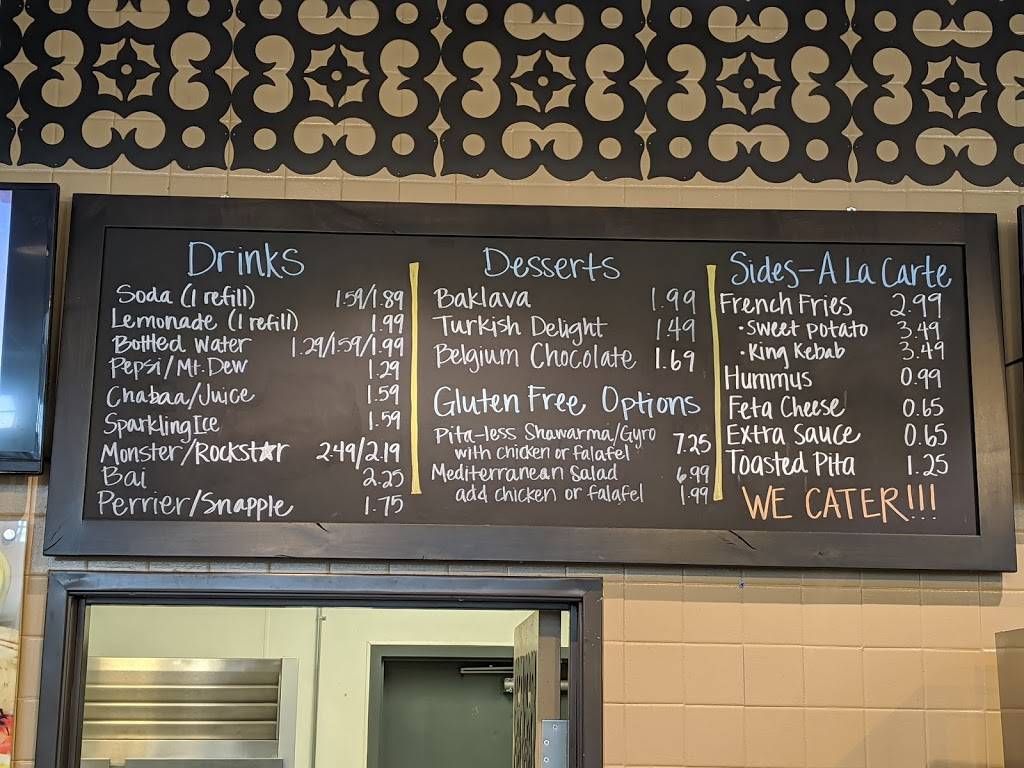 Drinks
Soda (1 refill) 1.59/1.89
Lemonade (1 refill) 1.99
Bottled Water 1.29/1.59/1.99
Pepsi/Mt. Dew 1.29
Chabaa/Juice 1.59
Sparkling Ice 1.59
Monster/Rockstar 2.49/2.19
Bai 2.25
Perrier/Snapple 1.75
Desserts
Baklava 1.99
Turkish Delight 1.49
Belgium Chocolate 1.69
Gluten Free Options
Pita-less Shawarma/Gyro 7.25
with chicken or falafel
Mediterranean Salad 6.99
add chicken or falafel 1.99
Sides - A La Carte
French Fries 2.99
• Sweet potato 3.49
• King Kebab 3.49
Hummus 0.99
Feta Cheese 0.65
Extra Sauce 0.65
Toasted Pita 1.25
WE CATER!!!